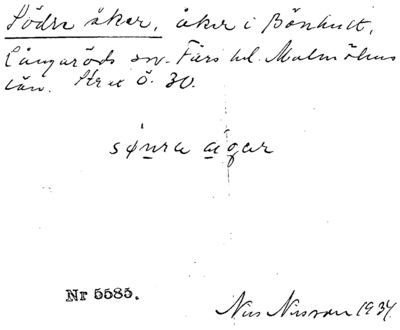 Södra åker, åker i Bönhult,
Långaröds sn. Färs hd. Malmöhus
län. Str. ö. 30.
sønra agar
Nr 5585.
Nils Nilsson 1934